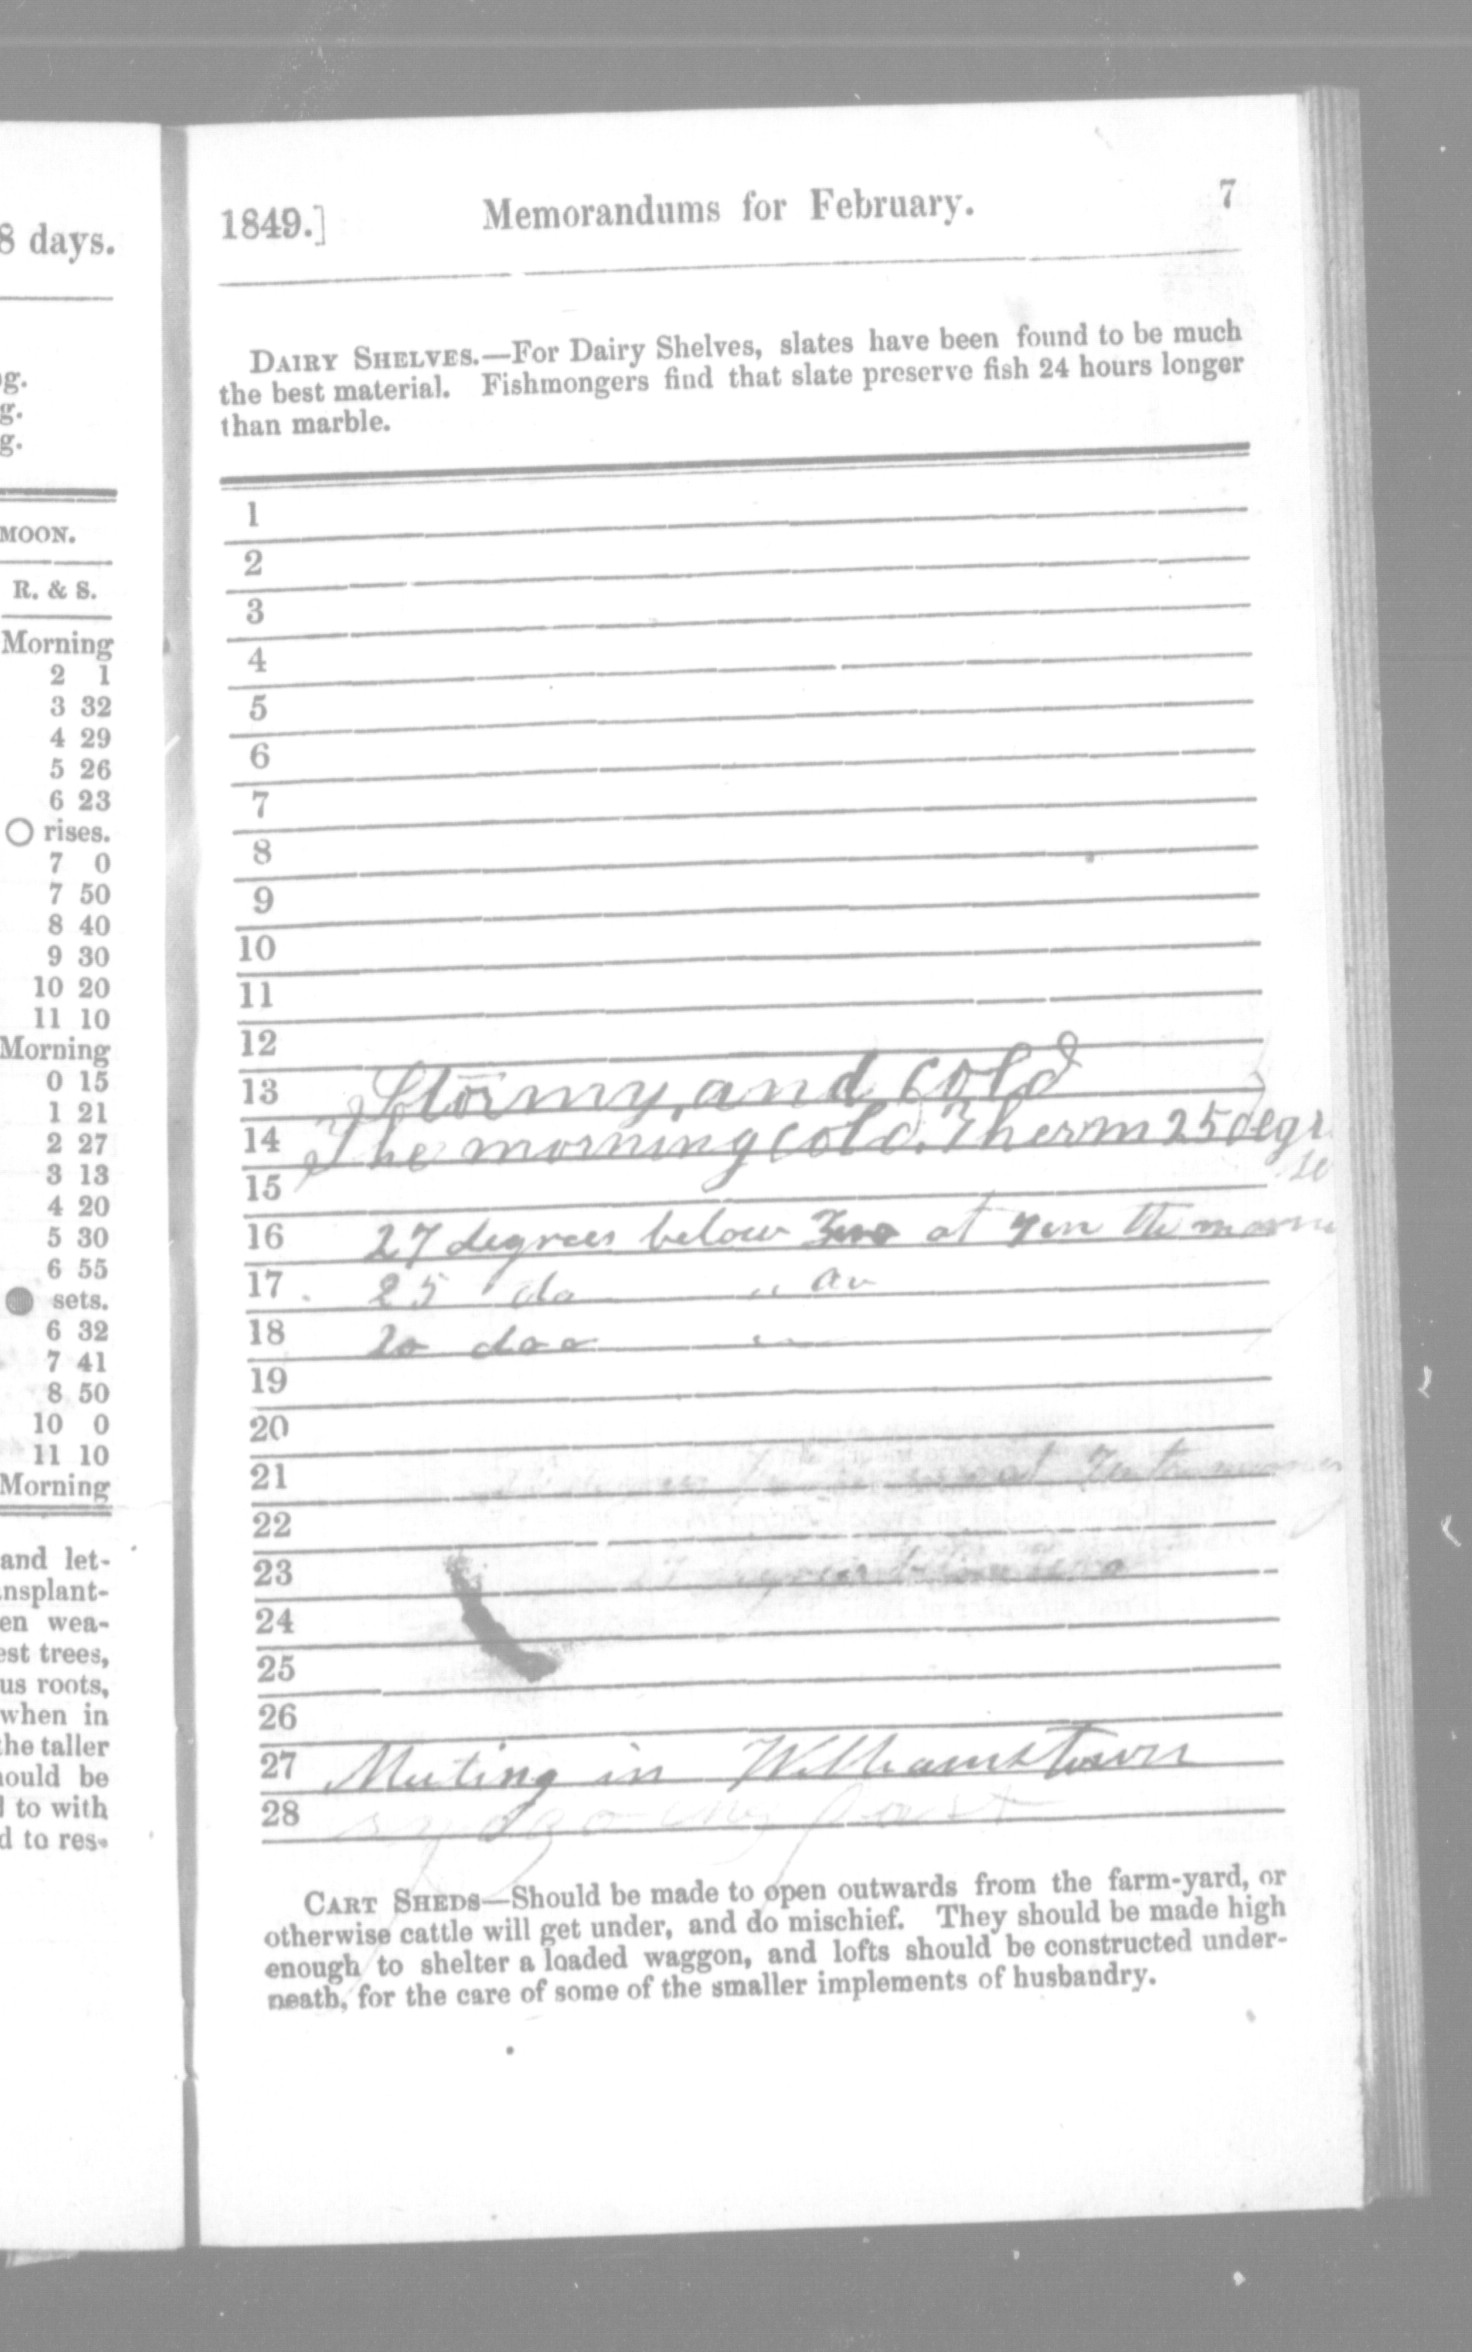 8 days.
g.
g.
g.
MOON.
R. & S.
Morning
2 1
3 32
4 29
5 26
6 23
rises.
7 0
7 50
8 40
9 30
10 20
11 10
Morning
0 15
1 21
2 27
3 13
4 20
5 30
6 55
sets.
6 32
7 41
8 50
10 0
11 10
Morning
and let-
nsplant-
en wea-
est trees,
us roots,
when in
the taller
hould be
to with
d to res-
1849.] Memorandums for February. 7
DAIRY SHELVES.—For Dairy Shelves, slates have been found to be much
the best material. Fishmongers find that slate preserve fish 24 hours longer
than marble.
1
2
3
4
5
6
7
8
9
10
11
12
13 Stormy and cold
14 The morning cold. Therm 25 degr
15
16 27 degrees below Zero at in the morni
17 25 do
18 20
19
20
21
22
23 below
24
25
26
27 Meeting in Williamstown
28
CART SHEDS—Should be made to open outwards from the farm-yard, or
otherwise cattle will get under, and do mischief. They should be made high
enough to shelter a loaded waggon, and lofts should be constructed under-
neath, for the care of some of the smaller implements of husbandry.